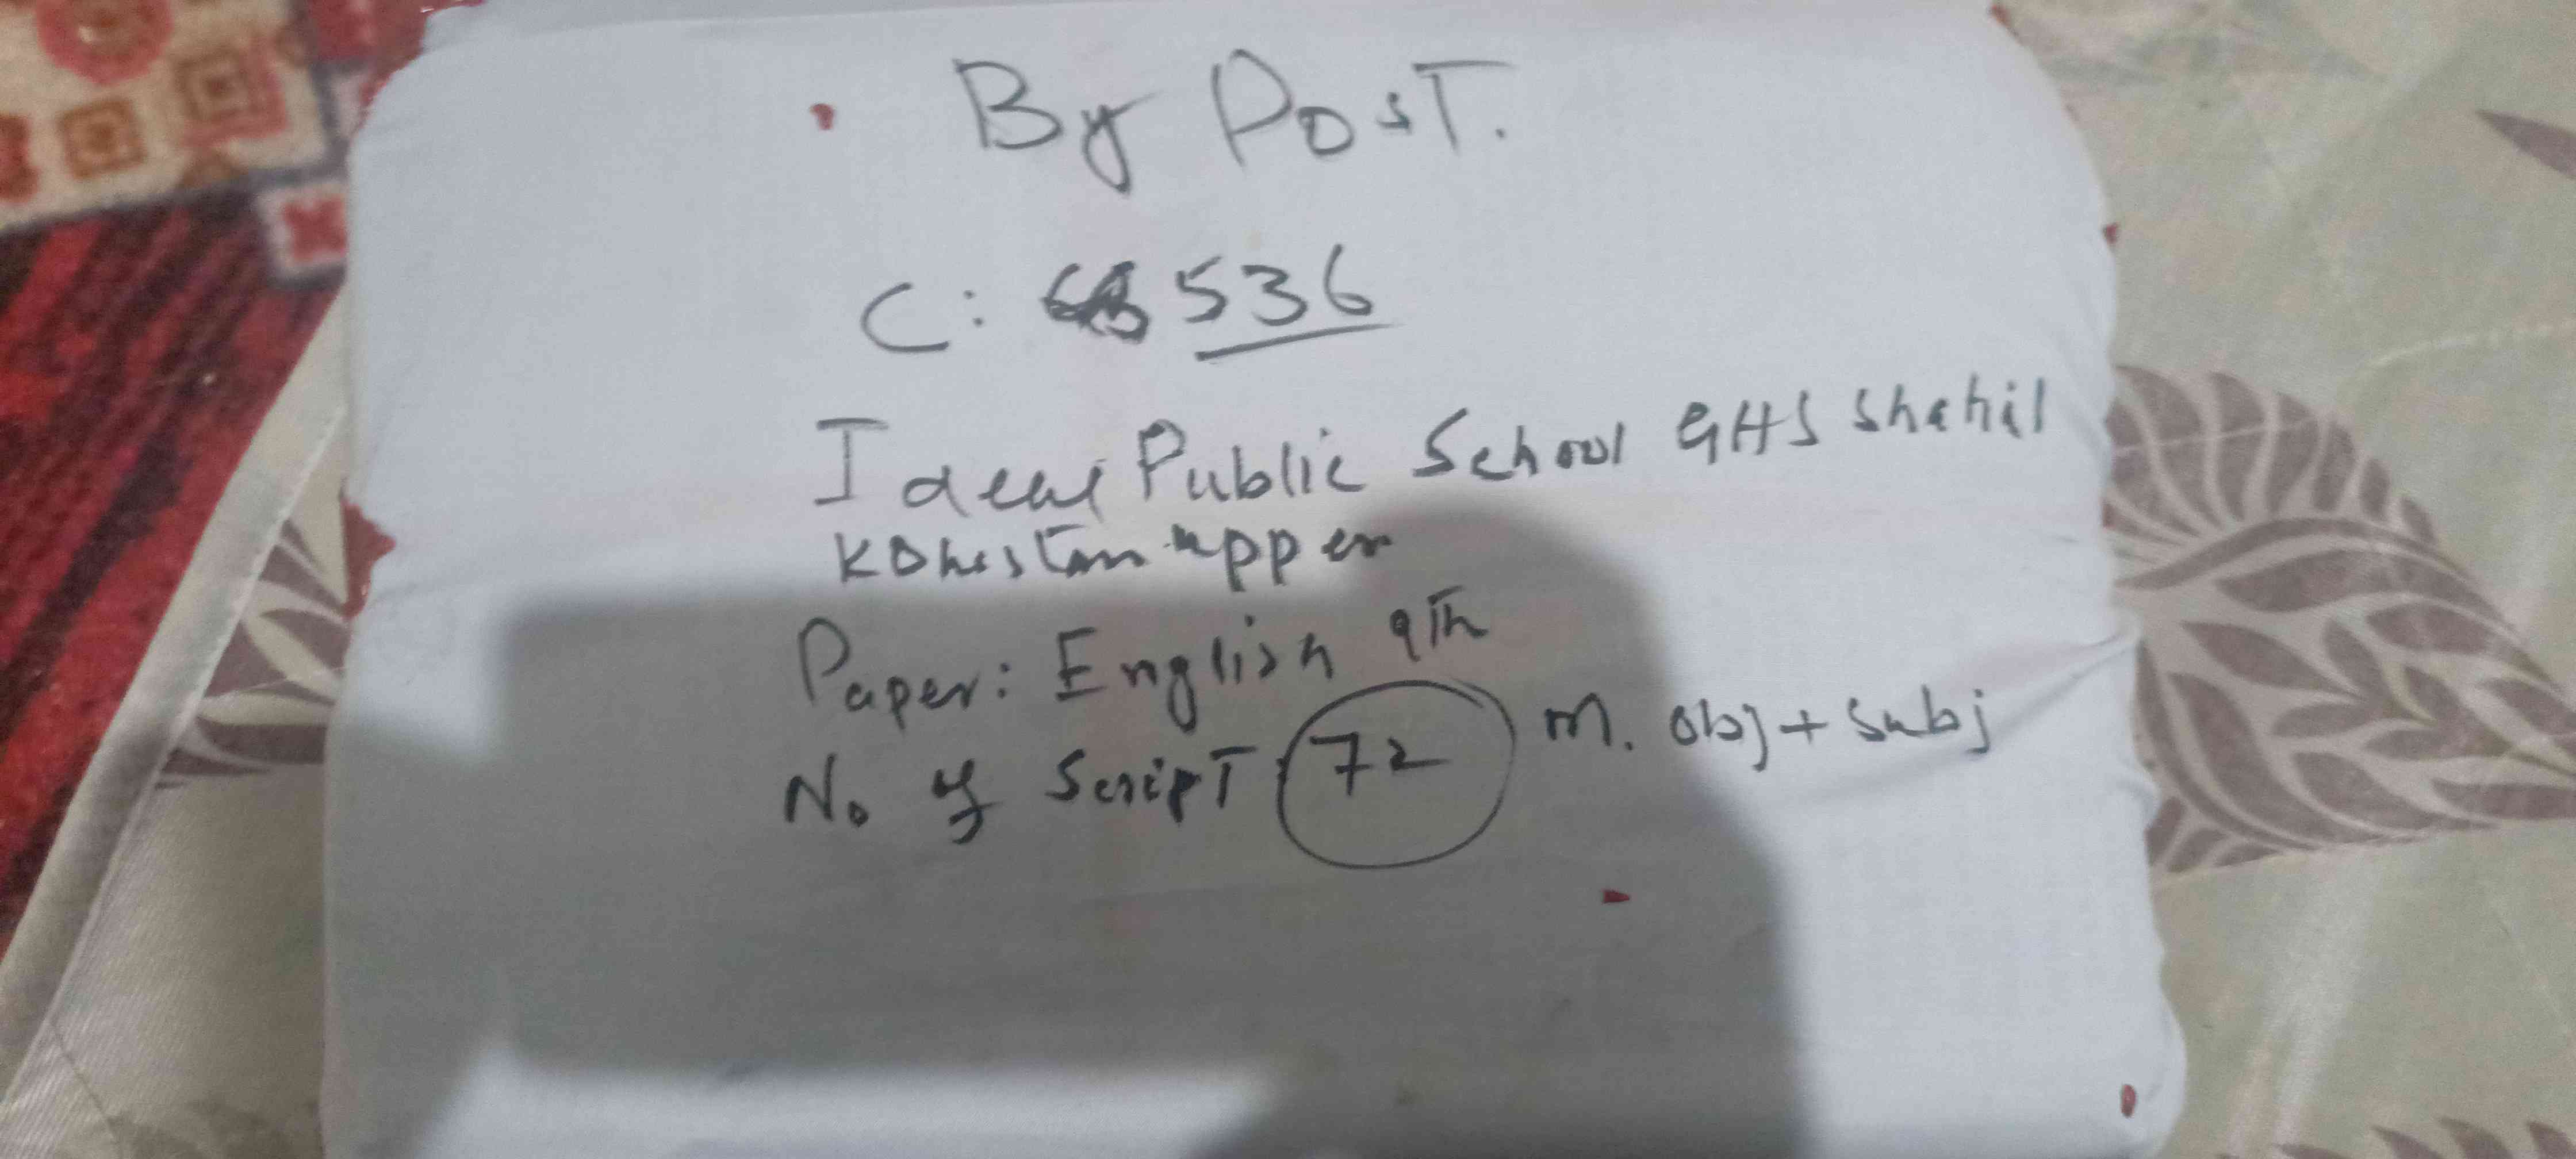 By Post.
C: 536
Ideal Public School GHS Shahil
Kohestan upper
Paper: English 9th
No of Script 72 M. Obj + Subj